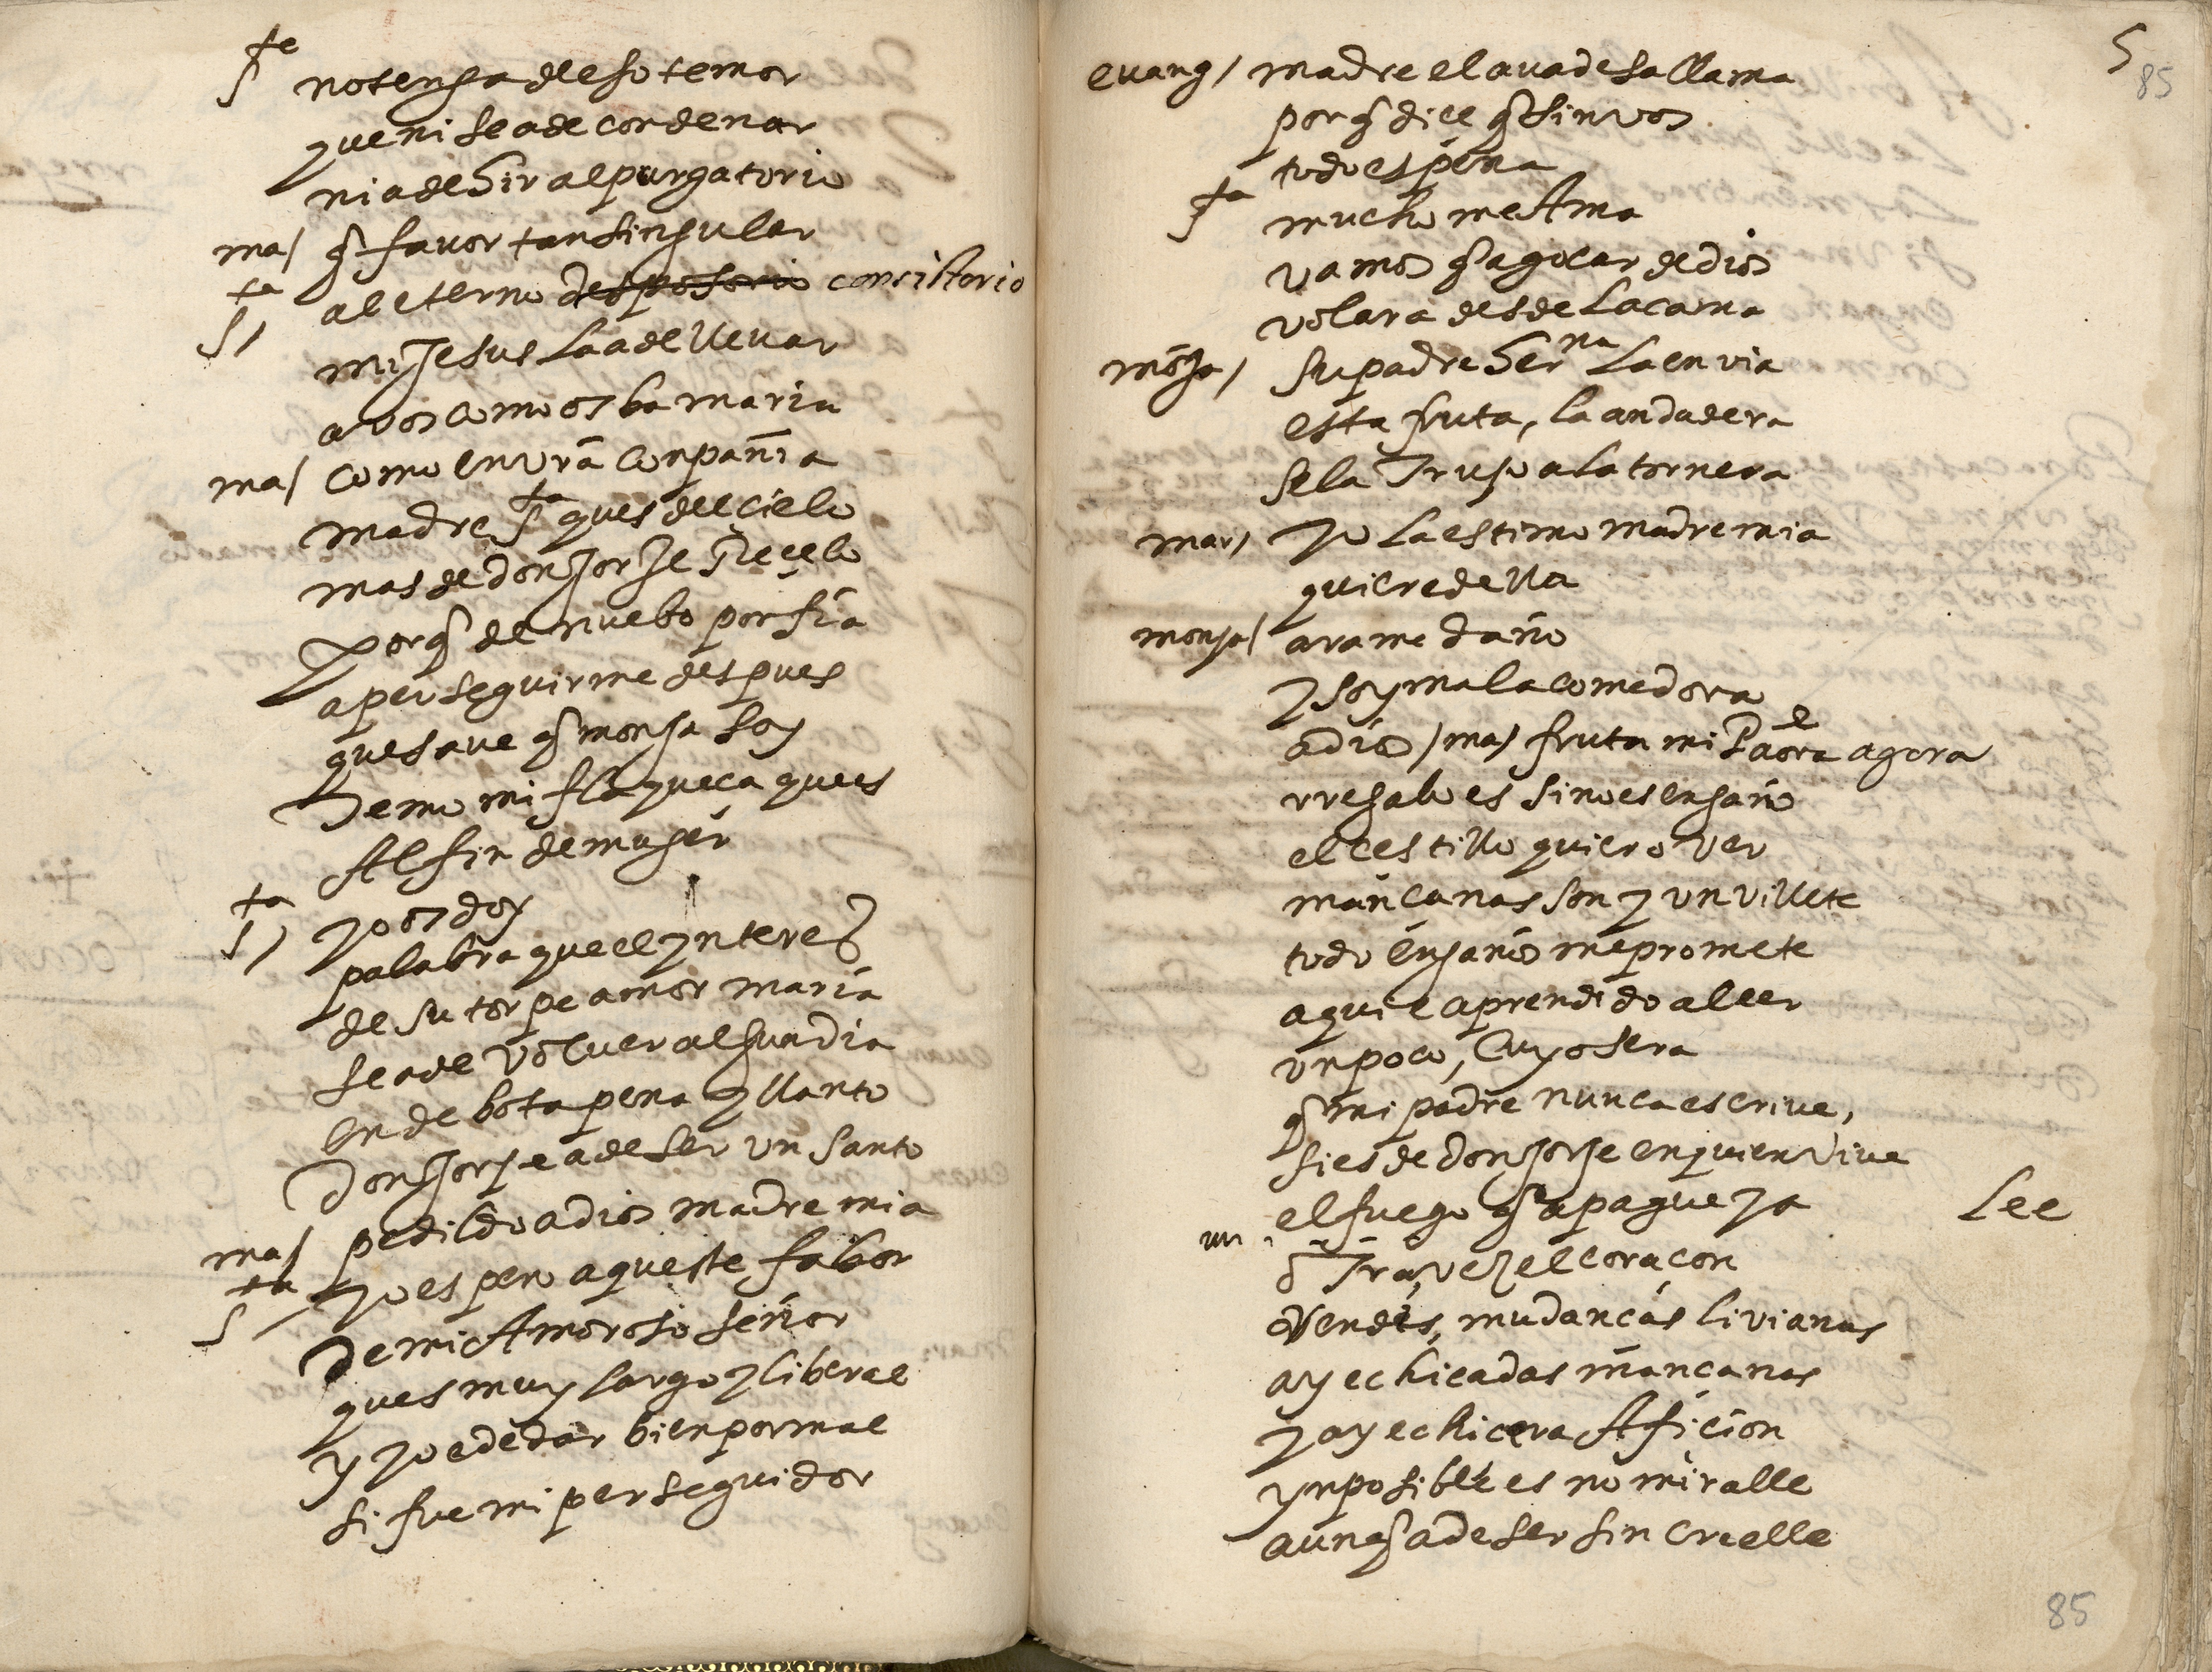 S^ta no tenga de eso temor
que ni se a de condenar
ni a de hir al purgatorio
ma/ q̃ favor tan singular
S^ta/ al eterno desposorio consistorio
mi Jesus la a de llevar
a vos como os ba maria
ma/ como en vr̃a conpañia
madre S^ta ques del cielo
mas de don Jorje Recelo
porq̃ de nuebo porfia
a perseguirme despues
que save q̃ monja soy
Temo mi flaqueça ques
Al fin de muger
S^ta/ yo os doy
palabra que el ynteres
de su torpe amor maria
se a de volver algun dia
en debota pena y llanto
Don Jorje a de ser un santo
ma/ pedildo a dios madre mia
S^ta yo espero aqueste fabor
De mi Amoroso señor
ques muy largo y liberal
y yo e de dar bien por mal
si fue mi perseguidor
5
85
evang/ madre elava desa llama
porq̃ dice q̃ sin vos
todo es pena
S^ta mucho me Ama
vamos q̃ a goçar de dios
volara desde la cama
mõja/ su padre her^na la envia
esta fruta, la andadera
se la Trujo a la tornera
mar/ yo la estimo madre mia
quiere della
monja/ arame daño
y soy mala comedora
adios /ma/ fruta mi P^e aora agora
rregalo es si no es engaño
el cestillo quiero ver
mançanas son y un villete
todo engaños me promete
aqui e aprendido a leer
un poco, cuyo sera
q̃ mi padre nunca escrive,
si es de don Jorje en quien vive
el fuego q̃ apague ya Lee
õ Tra vez el coraçon
ofendeis, mudanças livianas
ay echiçadas mançanas
y ay echicera Afiçion
ynposible es no miralle
aunq̃ a de ser sin creelle
85